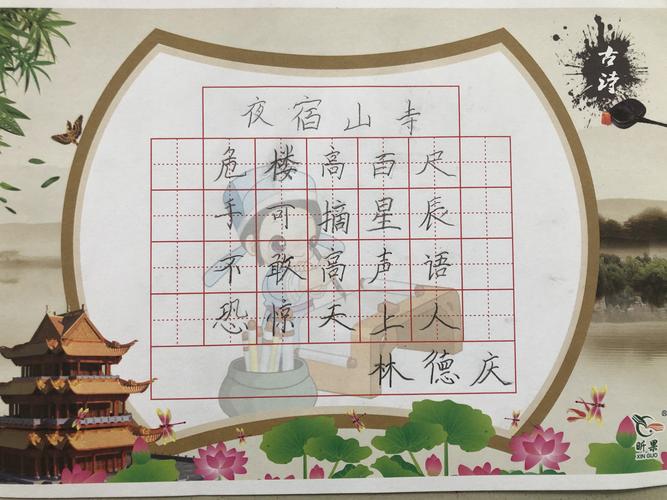 古诗
夜宿山寺
危楼高百尺
手可摘星辰
不敢高声语
恐惊天上人
林德庆
昕果
XIN GUO